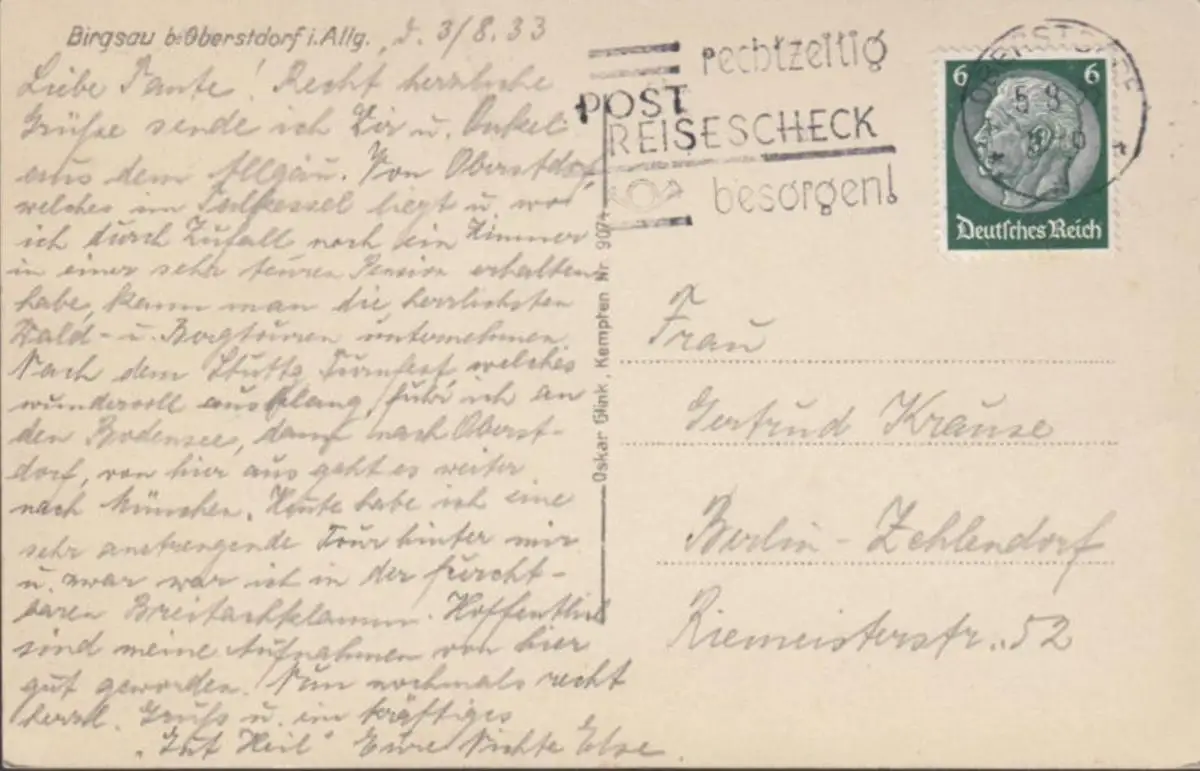 Birgsau b. Oberstdorf i. Allg. , d. 3/8. 33
Liebe Tante! Recht herrliche
Grüsse sende ich Dir u. Onkel
aus dem Allgäu. Von Oberstdorf,
welches im Talkessel liegt u. wo
ich durch Zufall noch ein Zimmer
in einer sehr teuren Pension erhalten
habe, kann man die herrlichsten
Wald- u. Bergtouren unternehmen.
Nach dem Stuttg. Turnfest welches
wundervoll ausklang, fuhr ich an
den Bodensee, dann nach Oberst-
dorf, von hier aus geht es weiter
nach München. Heute habe ich eine
sehr anstrengende Tour hinter mir
u. zwar war ich in der furcht-
baren Breitachklamm. Hoffentlich
sind meine Aufnahmen von hier
gut geworden. Nun nochmals recht
herzl. Gruss u. ein kräftiges
"Gut Heil" Eure Nichte Else.
Oskar Glink, Kempten Nr. 9074
rechtzeitig
POST
REISESCHECK
besorgen!
OBERSTDORF
5 8
6 6
Deutsches Reich
Frau
Gertrud Krause
Berlin-Zehlendorf
Riemeisterstr. 52